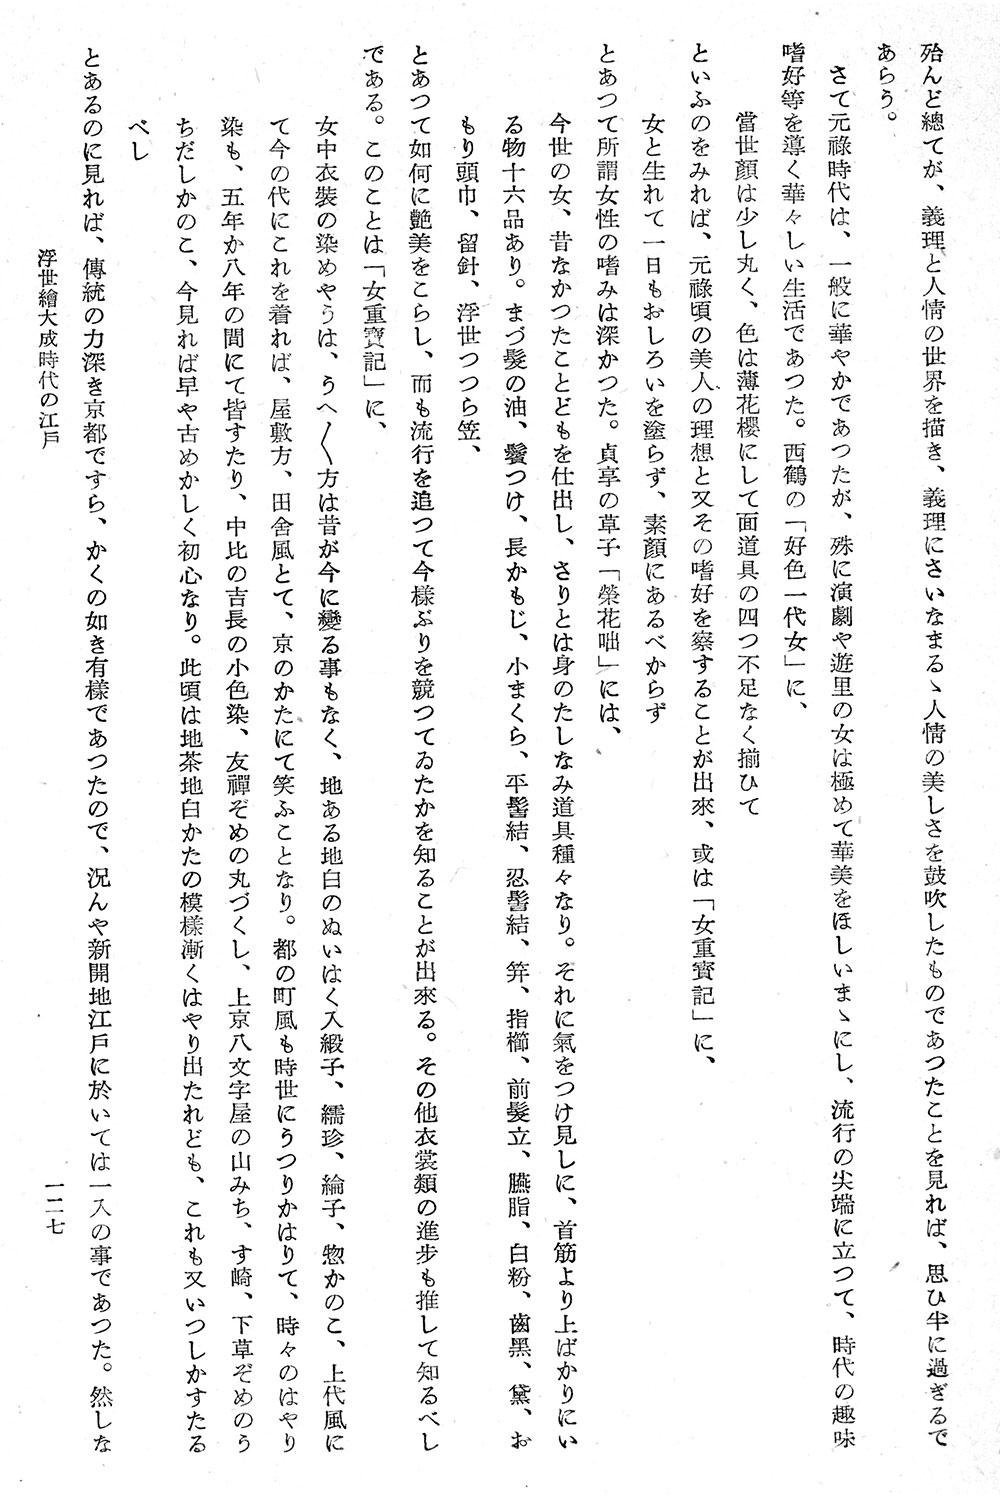 殆んど總てが、義理と人情の世界を描き、義理にさいなまるゝ人情の美しさを鼓吹したものであつたことを見れば、思ひ半に過ぎるで
あらう。
さて元祿時代は、一般に華やかであつたが、殊に演劇や遊里の女は極めて華美をほしいまゝにし、流行の尖端に立つて、時代の趣味
嗜好等を導く華々しい生活であつた。西鶴の「好色一代女」に、
當世顏は少し丸く、色は薄花櫻にして面道具の四つ不足なく揃ひて
といふのをみれば、元祿頃の美人の理想と又その嗜好を察することが出來、或は「女重寳記」に、
女と生れて一日もおしろいを塗らず、素顏にあるべからず
とあつて所謂女性の嗜みは深かつた。貞享の草子「榮花咄」には、
今世の女、昔なかつたことどもを仕出し、さりとは身のたしなみ道具種々なり。それに氣をつけ見しに、首筋より上ばかりにい
る物十六品あり。まづ髮の油、鬢つけ、長かもじ、小まくら、平髻結、忍髻結、笄、指櫛、前髮立、臙脂、白粉、齒黑、黛、お
もり頭巾、留針、浮世つつら笠、
とあつて如何に艶美をこらし、而も流行を追つて今樣ぶりを競つてゐたかを知ることが出來る。その他衣裳類の進步も推して知るべし
である。このことは「女重寳記」に、
女中衣裝の染めやうは、うへ〳〵方は昔が今に變る事もなく、地ある地白のぬいはく入緞子、繻珍、綸子、惣かのこ、上代風に
て今の代にこれを着れば、屋敷方、田舍風とて、京のかたにて笑ふことなり。都の町風も時世にうつりかはりて、時々のはやり
染も、五年か八年の間にて皆すたり、中比の吉長の小色染、友禪ぞめの丸づくし、上京八文字屋の山みち、す崎、下草ぞめのう
ちだしかのこ、今見れば早や古めかしく初心なり。此頃は地茶地白かたの模樣漸くはやり出たれども、これも又いつしかすたる
べし
とあるのに見れば、傳統の力深き京都ですら、かくの如き有樣であつたので、況んや新開地江戶に於いては一入の事であつた。然しな
浮世繪大成時代の江戶
一二七